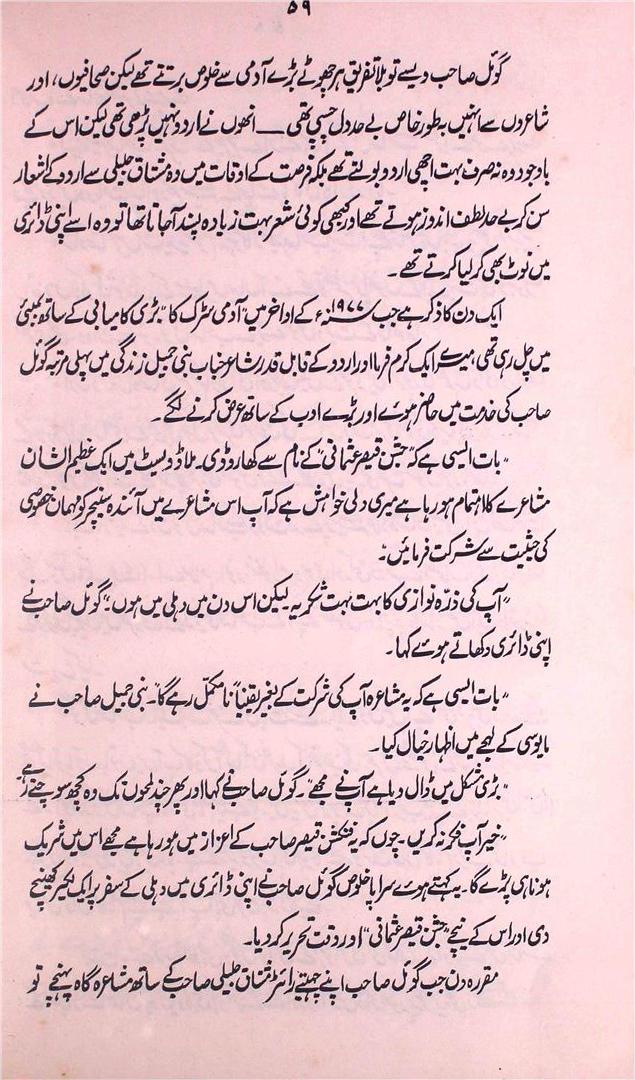 ۵۹
گوئل صاحب ویسے تو بلا تفریق ہر چھوٹے بڑے آدمی سے خلوص برتتے تھے لیکن صحافیوں، اور
شاعروں سے انہیں بہ طور خاص بے حد دل چسپی تھی ـــ انھوں نے اردو نہیں پڑھی تھی لیکن اس کے
باوجود وہ نہ صرف بہت اچھی اردو بولتے تھے بلکہ فرصت کے اوقات میں وہ مشتاق جلیلی سے اردو کے اشعار
سن کر بے حد لطف اندوز ہوتے تھے اور کبھی کوئی شعر بہت زیادہ پسند آجاتا تھا تو وہ اسے اپنی ڈائری
میں نوٹ بھی کر لیا کرتے تھے۔
ایک دن کا ذکر ہے جب ۱۹۷۷ء کے اواخر میں "آدمی سڑک کا" بڑی کامیابی کے ساتھ بمبئی
میں چل رہی تھی، میرے ایک کرم فرما اور اردو کے قابل قدر شاعر جناب بنی جمیل زندگی میں پہلی مرتبہ گوئل
صاحب کی خدمت میں حاضر ہوئے اور بڑے ادب کے ساتھ عرض کرنے لگے۔
"بات ایسی ہے کہ "جشن قیصر عثمانی" کے نام سے کھارودی۔ ملاڈ ویسٹ میں ایک عظیم الشان
مشاعرے کا اہتمام ہو رہا ہے میری دلی خواہش ہے کہ آپ اس مشاعرے میں آئندہ سنیچر کو مہمان خصوصی
کی حیثیت سے شرکت فرمائیں۔"
"آپ کی ذرّہ نوازی کا بہت بہت شکریہ لیکن اس دن میں دہلی میں ہوں۔" گوئل صاحب نے
اپنی ڈائری دکھاتے ہوئے کہا۔
"بات ایسی ہے کہ یہ مشاعرہ آپ کی شرکت کے بغیر یقیناً نا مکمل رہے گا۔" بنی جمیل صاحب نے
مایوسی کے لہجے میں اظہار خیال کیا۔
"بڑی مشکل میں ڈال دیا ہے آپ نے مجھے"۔ گوئل صاحب نے کہا اور پھر چند لمحوں تک وہ کچھ سوچتے رہے
"خیر آپ فکر نہ کریں۔ چوں کہ یہ فنکشن قیصر صاحب کے اعزاز میں ہو رہا ہے مجھے اس میں شریک
ہونا ہی پڑے گا۔ یہ کہتے ہوئے سراپا خلوص گوئل صاحب نے اپنی ڈائری میں دہلی کے سفر پر ایک لکیر کھینچ
دی اور اس کے نیچے "جشن قیصر عثمانی" اور وقت تحریر کر دیا۔
مقررہ دن جب گوئل صاحب اپنے چہیتے رائٹر مشتاق جلیلی صاحب کے ساتھ مشاعرہ گاہ پہنچے تو